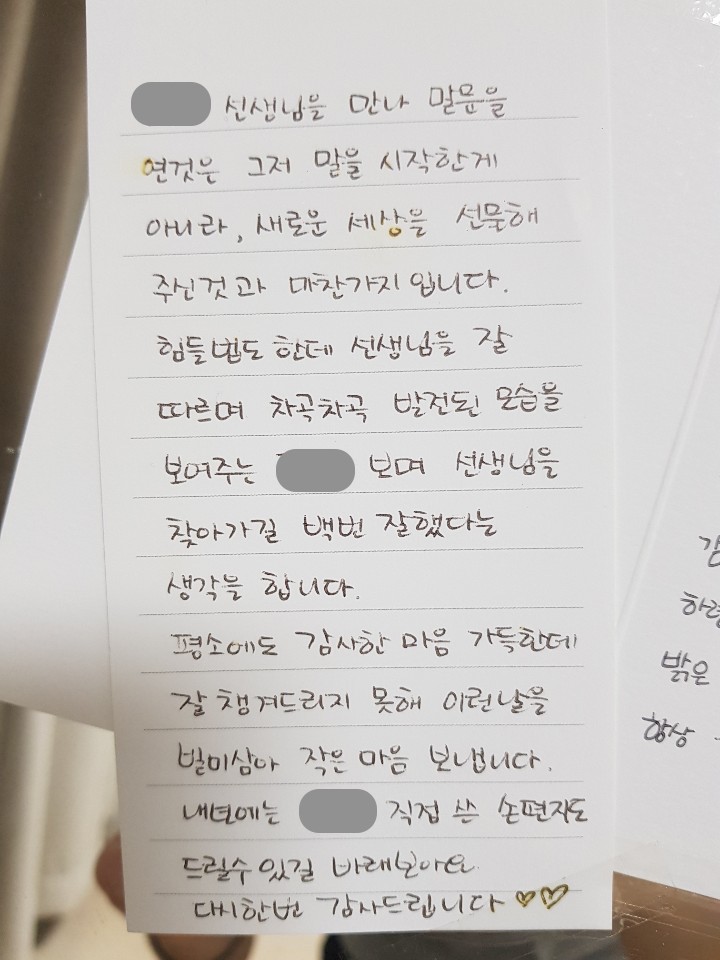 선생님을 만나 말문을
연것은 그저 말을 시작한게
아니라, 새로운 세상을 선물해
주신것과 마찬가지입니다.
힘들법도 한데 선생님을 잘
따르며 차곡차곡 발전된 모습을
보여주는 보며 선생님을
찾아가길 백번 잘했다는
생각을 합니다.
평소에도 감사한 마음 가득한데
잘 챙겨드리지 못해 이런날을
빌미삼아 작은 마음 보냅니다.
내년에는 직접 쓴 손편지도
드릴수있길 바래보아요
다시한번 감사드립니다 ♡♡
밝은
항상